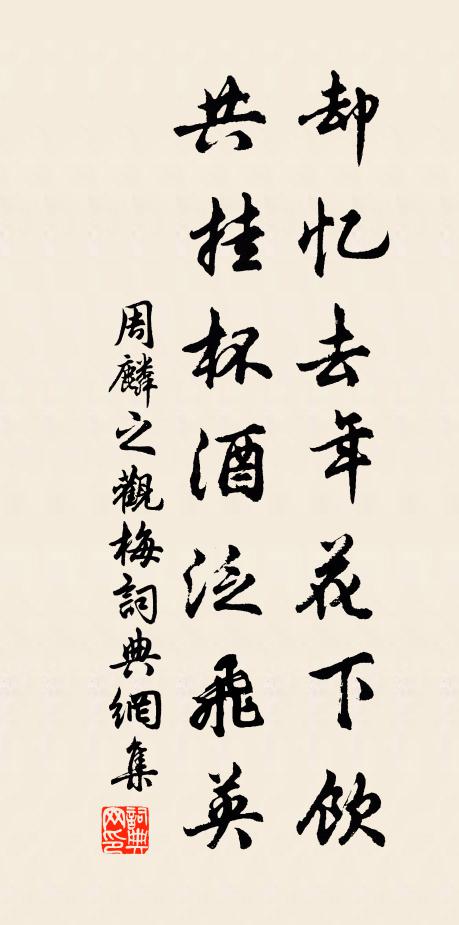 却忆去年花下饮
共挂杯酒泛飞英
周麟之觀梅詞典網集
詞典
网印